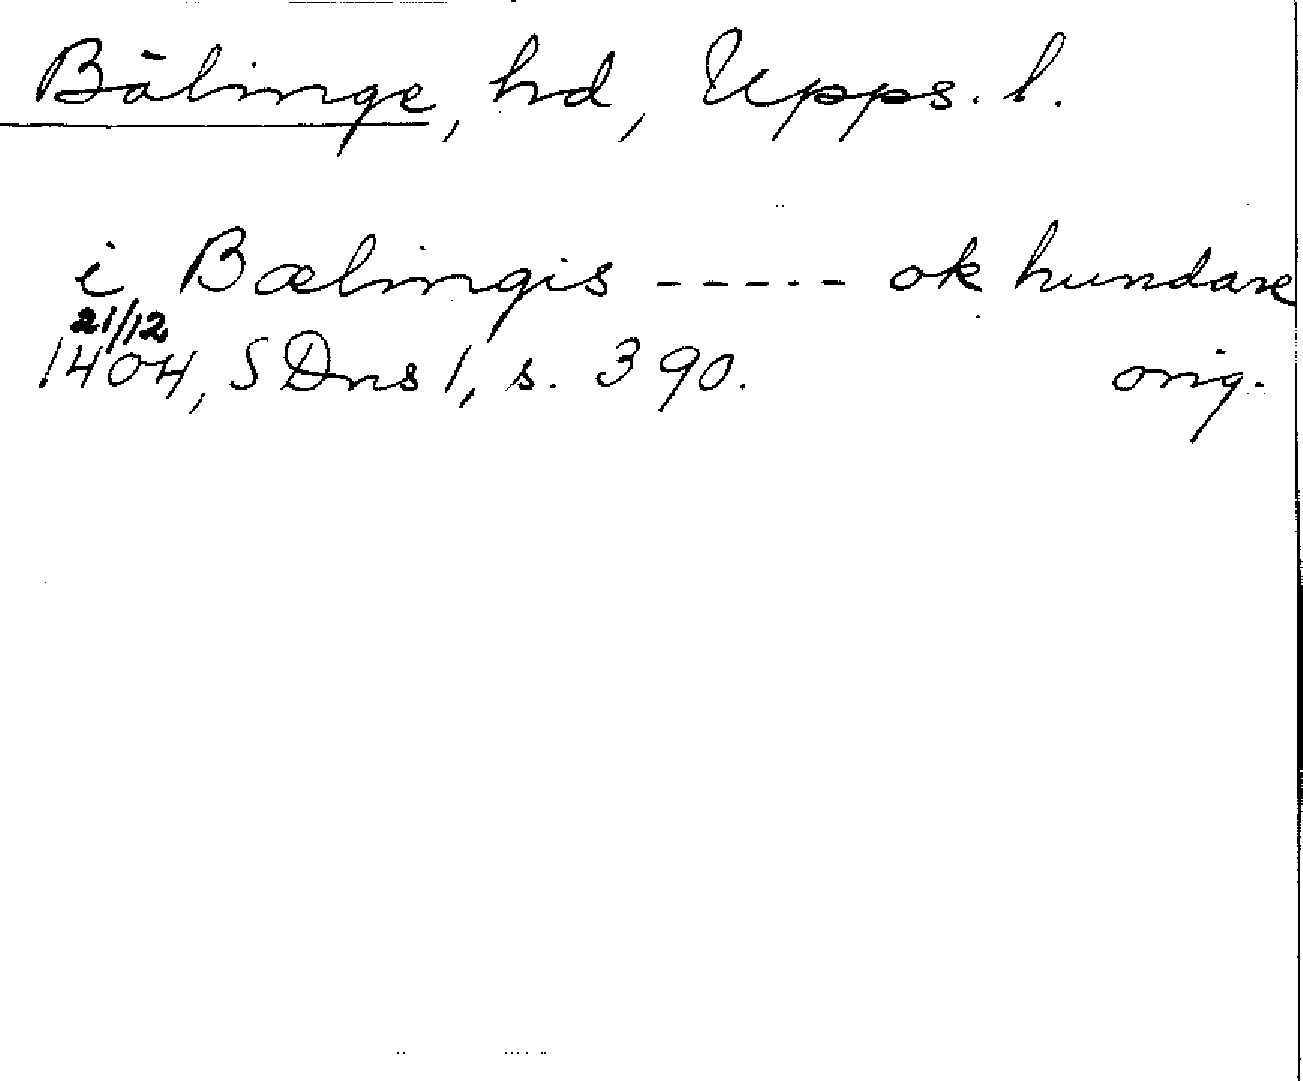 Bälinge, hd, Upps. l.
i Bælingis ----- ok hundare
21/12
1404, SDns 1, s. 390. orig.